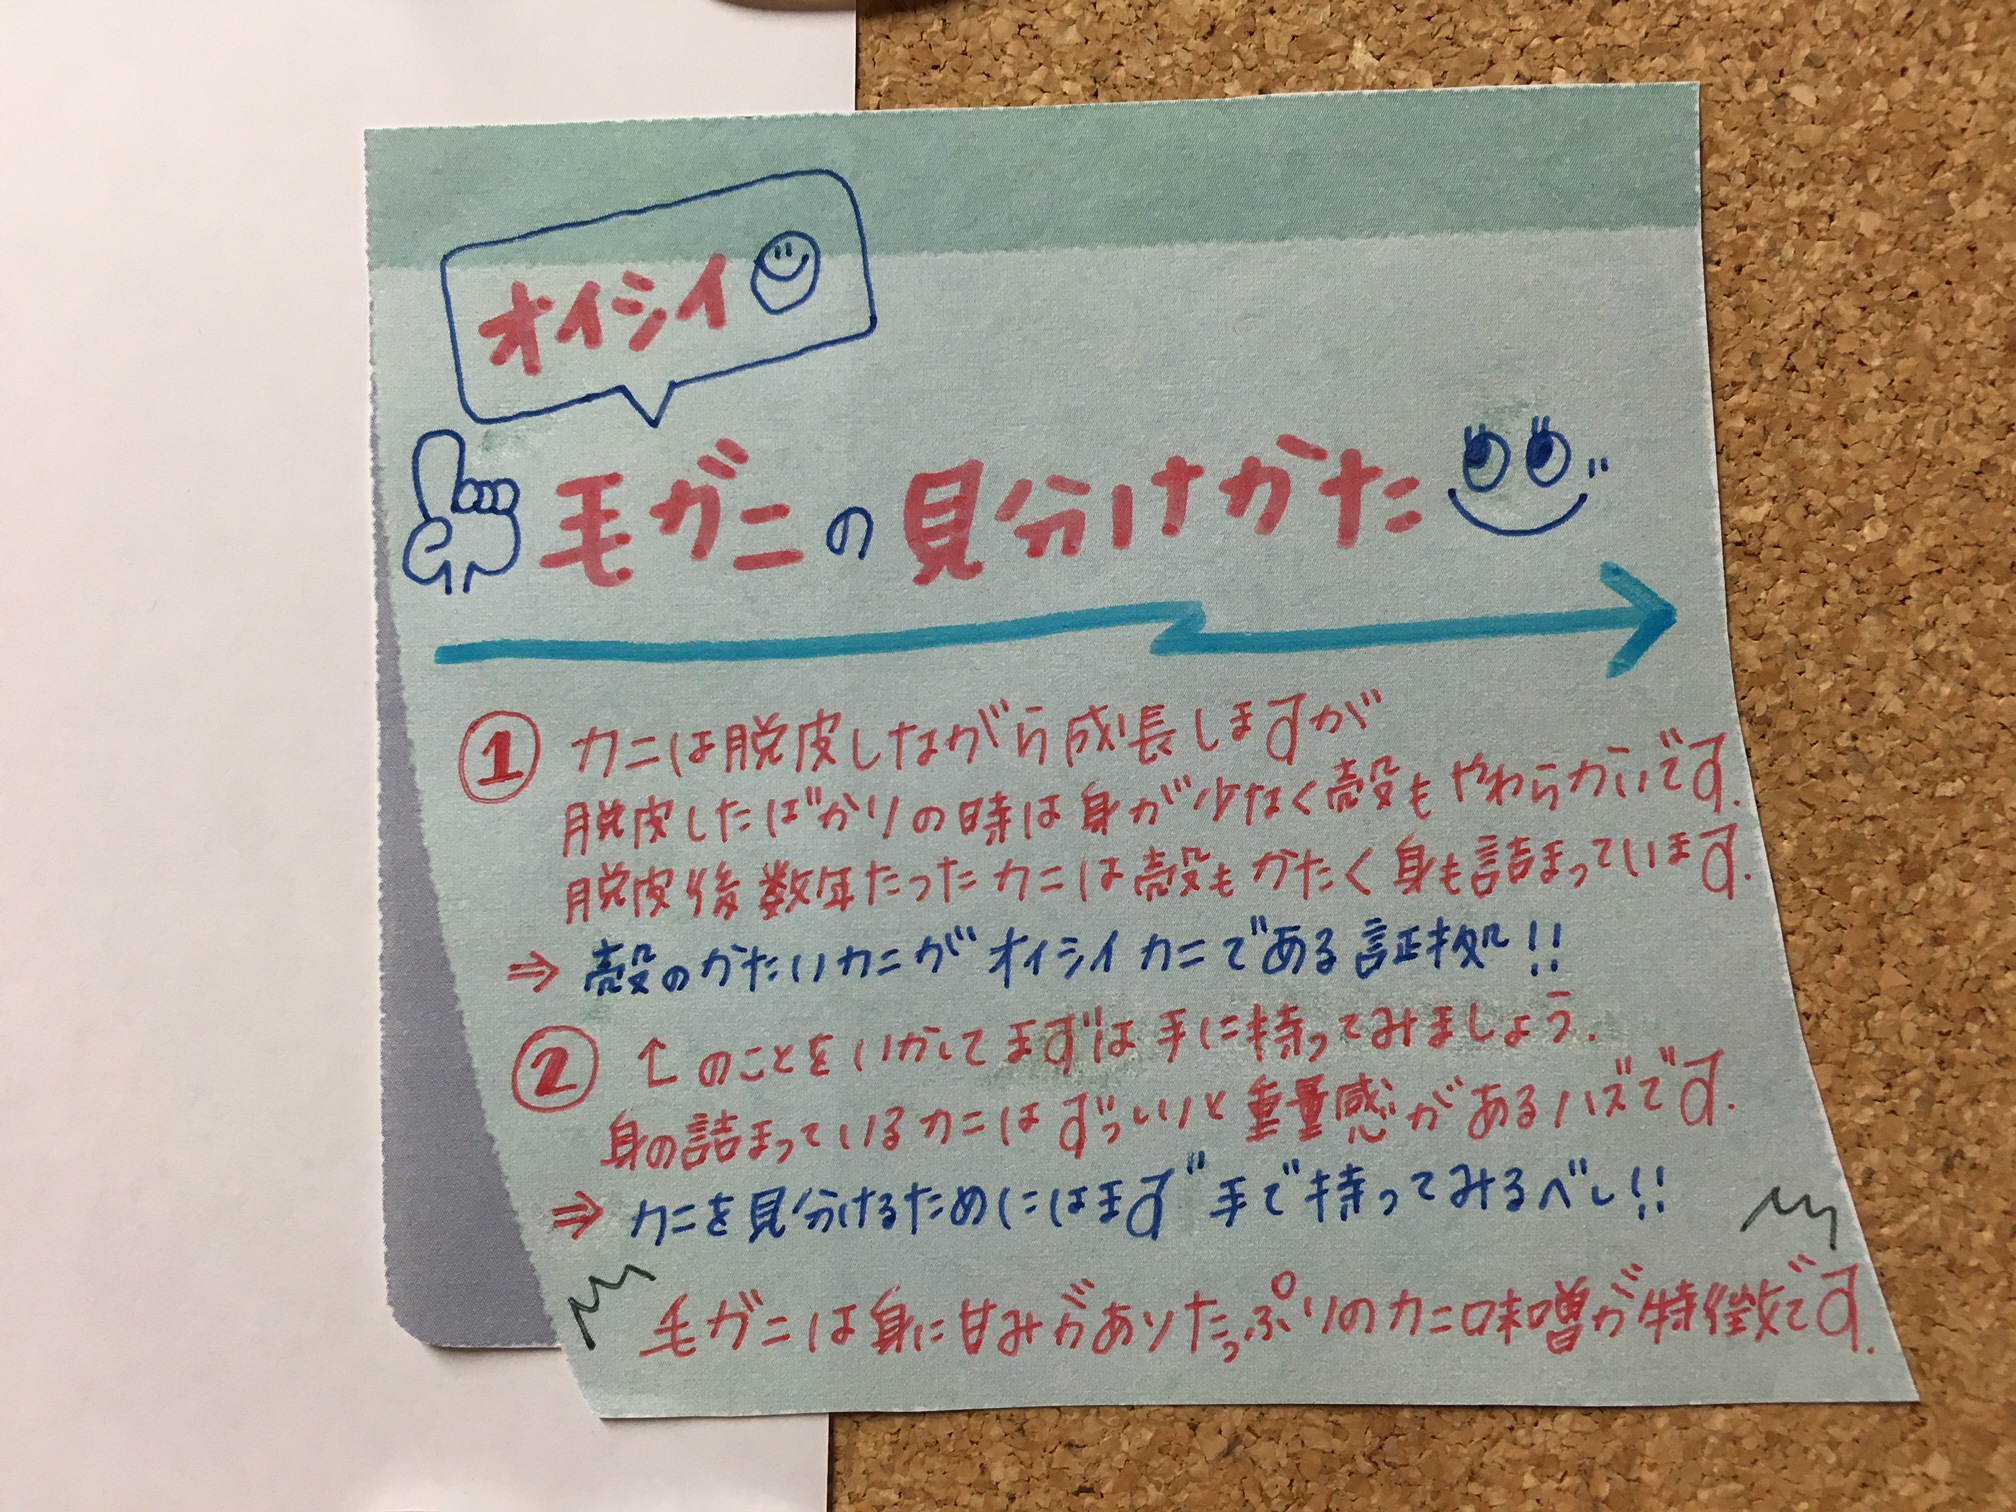 オイシイ
毛ガニの見分けかた
① カニは脱皮しながら成長しますが
脱皮したばかりの時は身が少なく殻もやわらかいです.
脱皮後数年たったカニは殻もかたく身も詰まっています.
⇒ 殻のかたいカニがオイシイカニである証拠!!
② ↑のことをいかしてまずは手に持ってみましょう.
身の詰まっているカニはずっしりと重量感があるハズです.
⇒ カニを見分けるためにはまず手で持ってみるべし!!
毛ガニは身に甘みがありたっぷりのカニ味噌が特徴です.